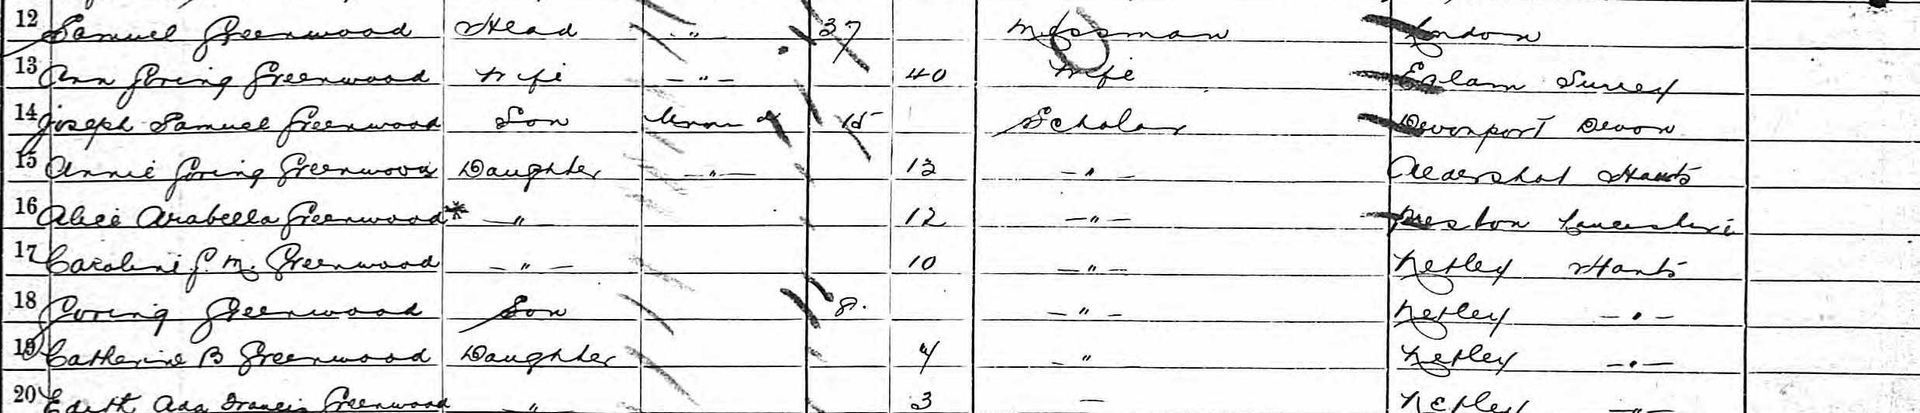 12 Samuel Greenwood Head — " — 37 Messman London
13 Ann Goring Greenwood Wife — " — 40 Wife Surrey
14 Joseph Samuel Greenwood Son 15 Scholar Devonport Devon
15 Annie Goring Greenwood Daughter — " — 13 — " — Aldershot Hants
16 Alice Arabella Greenwood * — " 12 — " — Preston Lancashire
17 Caroline G. M. Greenwood — " — 10 — " — Netley Hants
18 Goring Greenwood Son 8. — " — Netley — " —
19 Catherine B Greenwood Daughter 4 — " Netley — " —
20 Edith Ada Francis Greenwood " 3 — Netley — " —